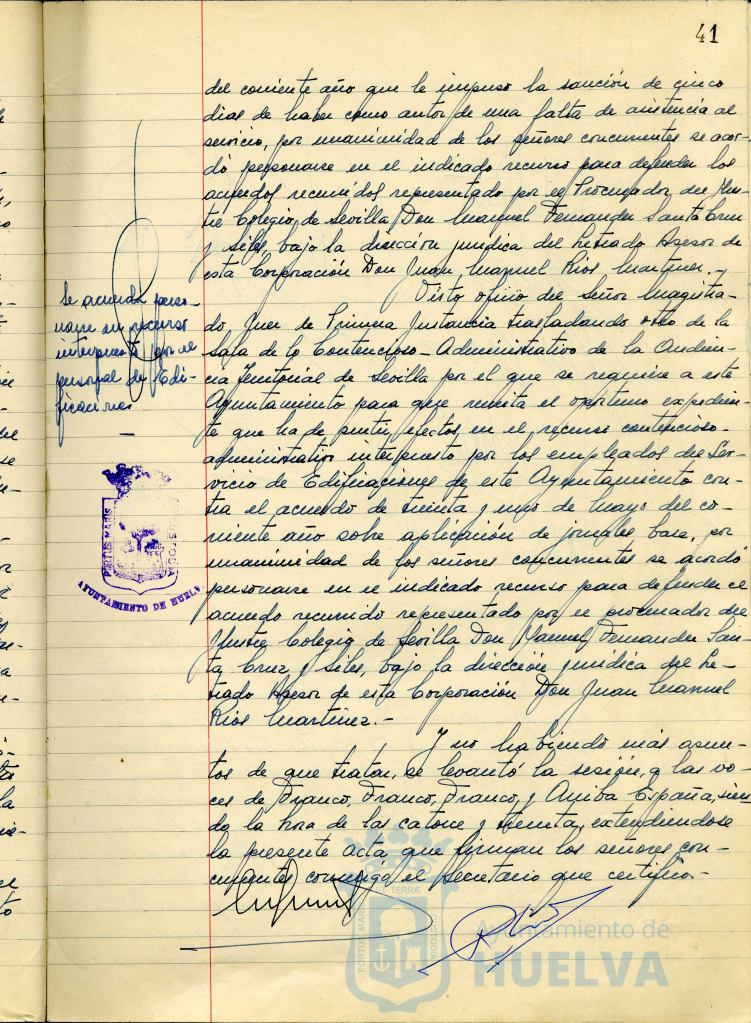 41
del corriente año que le impuso la sanción de cinco
dias de haber como autor de una falta de asistencia al
servicio, por unanimidad de los señores concurrentes se acor-
dó personarse en el indicado recurso para defender los
acuerdos recurridos representado por el Procurador del Ilus-
tre Colegio de Sevilla, Don Manuel Fernandez Santa Cruz
y Siles, bajo la dirección juridica del Letrado Asesor de
esta Corporación Don Juan Manuel Rios Martinez.-
Se acuerda perso-
narse en recurso
interpuesto por el
personal de Edi-
ficaciones
Visto oficio del Señor Magistra-
do Juez de Primera Instancia trasladando otro de la
Sala de lo Contencioso-Administrativo de la Audien-
cia Territorial de Sevilla por el que se requiere a este
Ayuntamiento para que remita el oportuno expedien-
te que ha de surtir efectos en el recurso contencioso-
administrativo interpuesto por los empleados del Ser-
vicio de Edificaciones de este Ayuntamiento con-
tra el acuerdo de treinta y uno de mayo del co-
rriente año sobre aplicación de jornales base, por
unanimidad de los señores concurrentes se acordó
personarse en el indicado recurso para defender el
acuerdo recurrido representado por el procurador del
Ilustre Colegio de Sevilla Don Manuel Fernandez San-
ta Cruz y Siles, bajo la dirección juridica del Le-
trado Asesor de esta Corporación Don Juan Manuel
Rios Martinez.-
Y no habiendo más asun-
tos de que tratar, se levantó la sesión, a las vo-
ces de Franco, Franco, Franco, y Arriba España, sien
do la hora de las catorce y treinta, extendiendose
la presente Acta que firman los señores con-
currentes conmigo el Secretario que certifico.-
PORTUS MARIS
CUSTODIA
AYUNTAMIENTO DE HUELVA
Ayuntamiento de
HUELVA